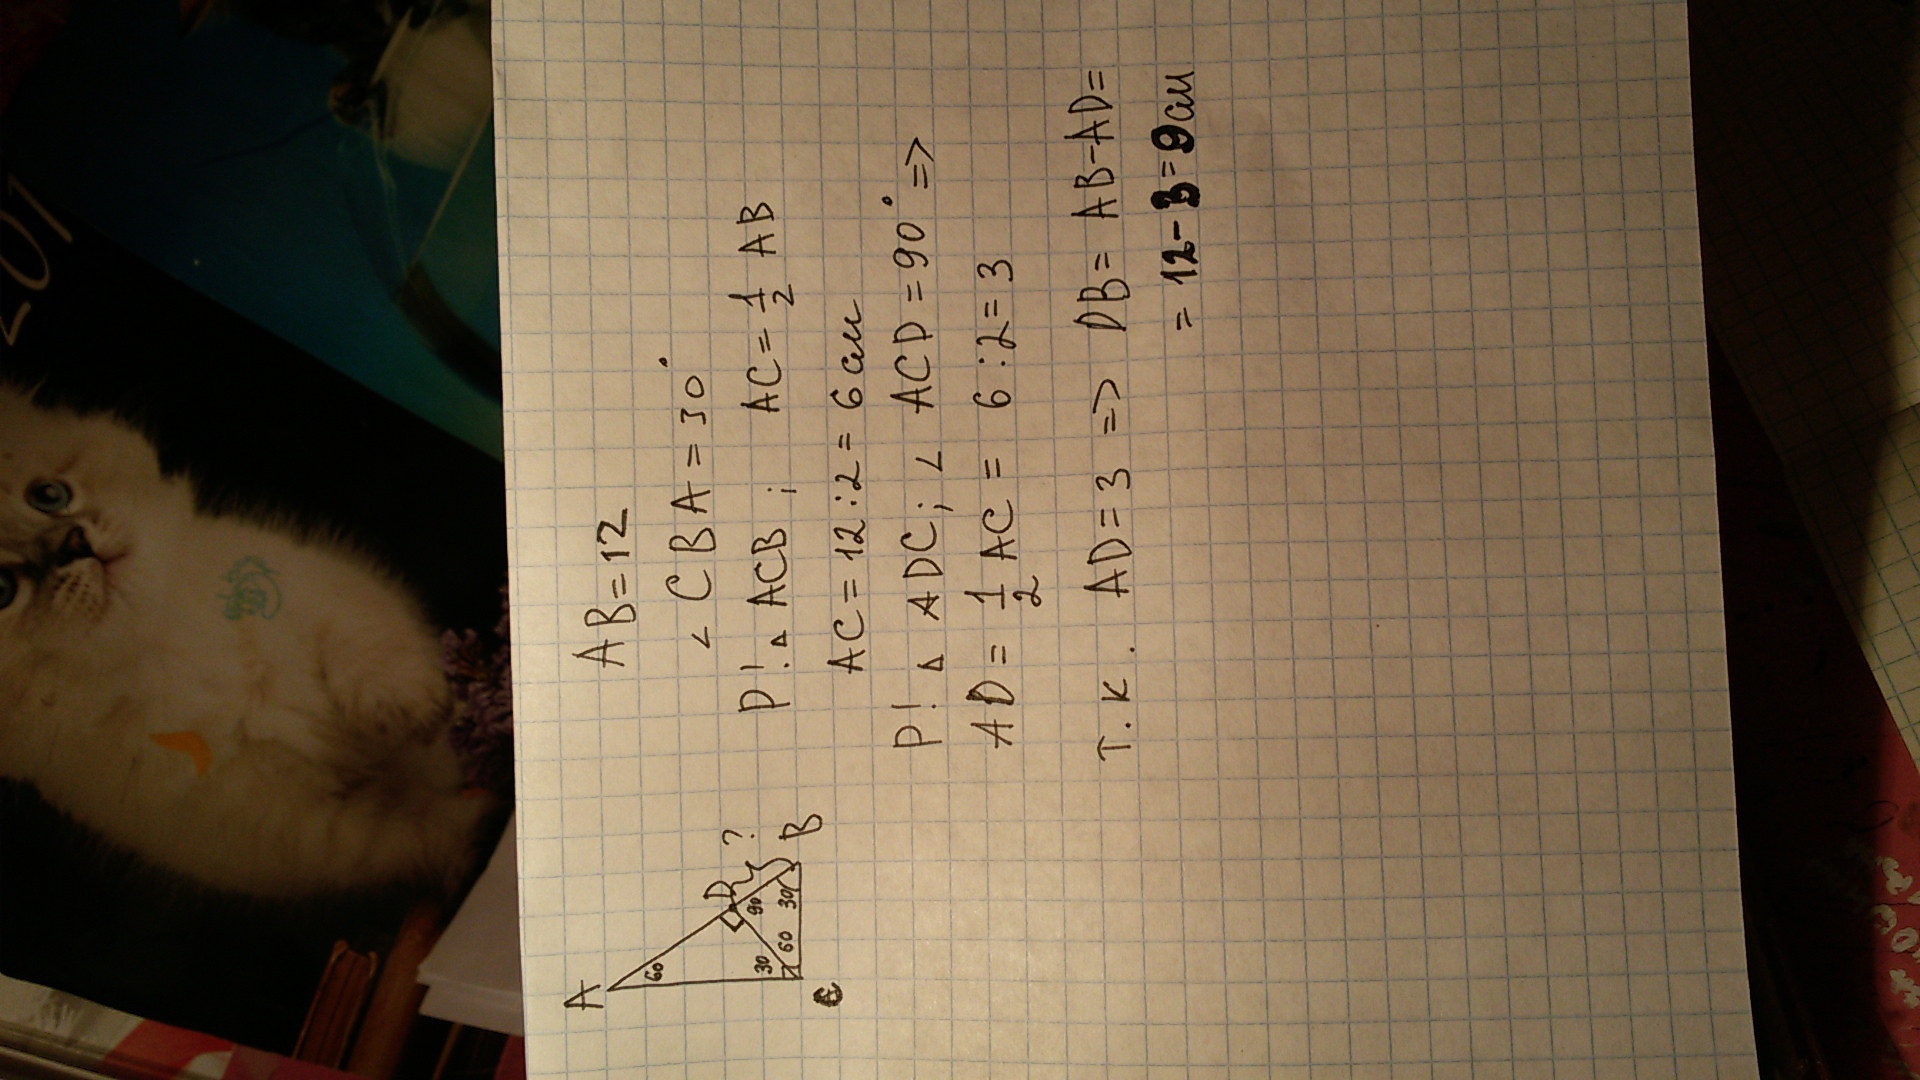 201
A
60
D
?
90
30
60
30
C
B
AB=12
∠ CBA=30°
P! △ ACB ; AC=1/2 AB
AC=12:2=6см
P! △ ADC; ∠ ACD=90° =>
AD= 1/2 AC = 6:2=3
т.к. AD=3 => DB= AB-AD=
= 12-3=9см